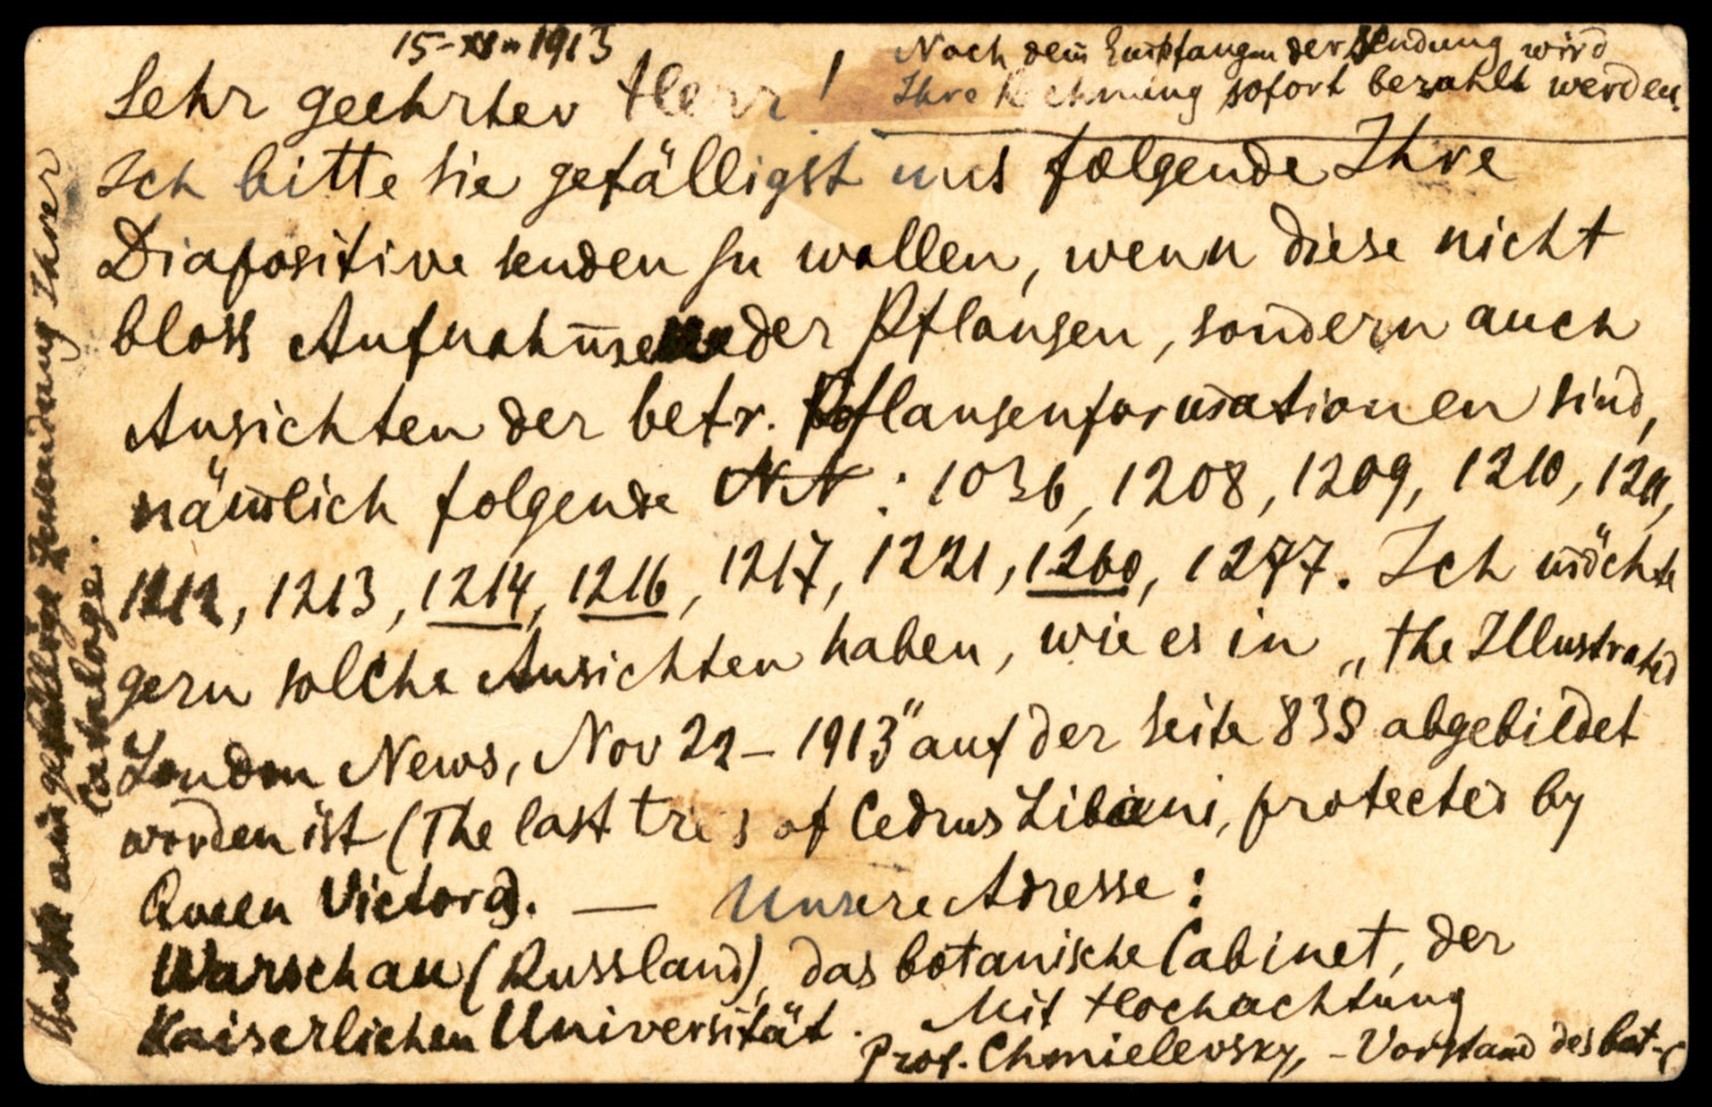 15-XII-1913
Nach dem Empfangen der Sendung wird
Ihre Rechnung sofort bezahlt werden.
Sehr geehrter Herr!
Ich bitte Sie gefälligst uns folgende Ihre
Diapositive senden zu wollen, wenn diese nicht
bloss Aufnahmen der Pflanzen, sondern auch
Ansichten der betr. Pflanzenformationen sind,
nämlich folgende NN: 1036, 1208, 1209, 1210, 1211,
1212, 1213, 1214, 1216, 1217, 1221, 1260, 1277. Ich möchte
gern solche Ansichten haben, wie es in „the Illustrated
London News, Nov 22-1913" auf der Seite 838 abgebildet
worden ist (The last trees of Cedrus Libani, protected by
Queen Victoria). — Unsere Adresse:
Warschau (Russland), das botanische Cabinet, der
Kaiserlichen Universität.
Mit Hochachtung
Prof. Chmielevsky, - Vorstand des bot-C
um gefällige Zusendung Ihrer
Cataloge.